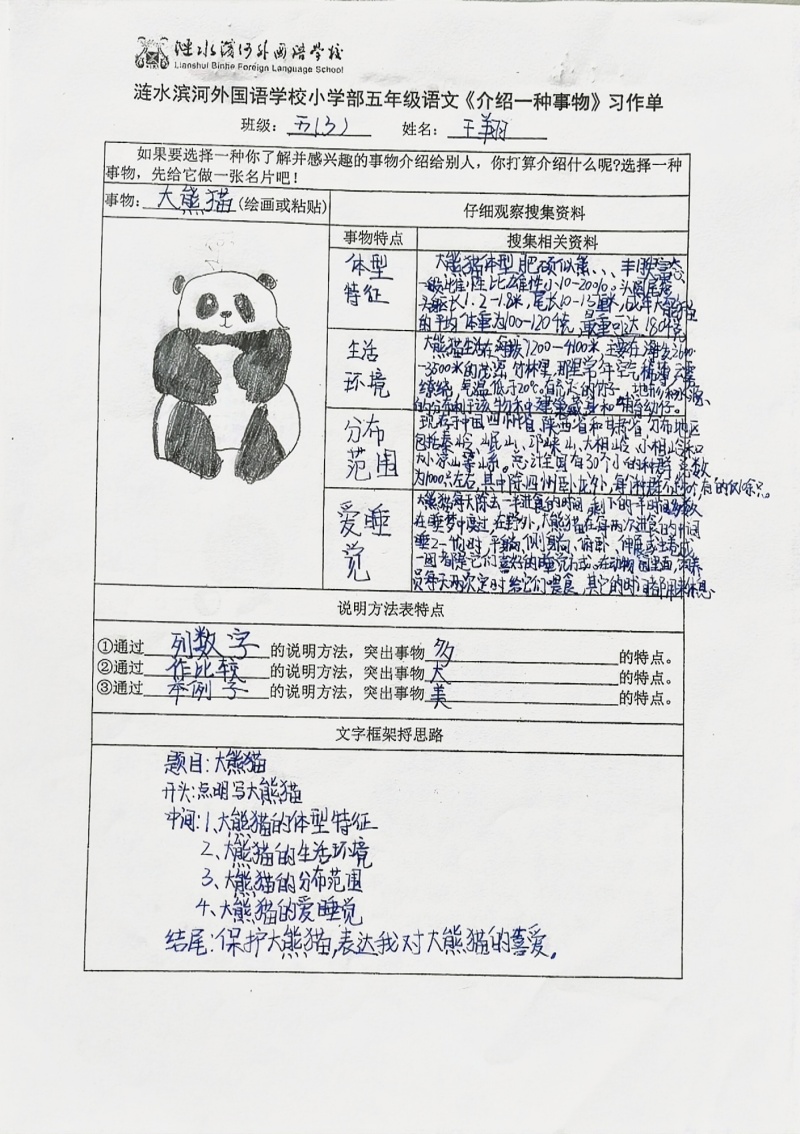 涟水滨河外国语学校
Lianshui Binhe Foreign Language School
涟水滨河外国语学校小学部五年级语文《介绍一种事物》习作单
班级：五(3) 姓名：王翔
如果要选择一种你了解并感兴趣的事物介绍给别人，你打算介绍什么呢?选择一种
事物，先给它做一张名片吧！
事物：大熊猫(绘画或粘贴)
仔细观察搜集资料
事物特点
搜集相关资料
体型
特征
大熊猫体型肥硕似熊、丰腴富态
一般雌性比雄性小10-20%。头圆尾短
头躯长1.2-1.8米，尾长10-15厘米，成年大熊猫
的平均体重为100-120千克，最重可达180千克
生活
环境
大熊猫生活在海拔1200-4100米，主要在海拔2600
-3500米的茂密竹林里，那里常年空气稀薄，云雾
缭绕，气温低于20℃。
分布
范围
现存于中国四川省，陕西省和甘肃省，分布地区
包括秦岭、岷山、邛崃山、大相岭、小相岭和
大小凉山等山系。总计全国有30个小的种群，总数
为1000只左右，其中除四川卧龙外，每个种群
爱睡
觉
大熊猫每天除去一半进食的时间，剩下的一半时间多数
在睡梦中度过，在野外，大熊猫在每两次进食的中间
睡2-4小时，平躺、侧躺、俯卧、伸展或蜷成
一团都是它们喜好的睡觉方式。在动物园里面，饲养
员每天两次定时给它们喂食，其它的时间都用来休息
说明方法表特点
①通过列数字的说明方法，突出事物多的特点。
②通过作比较的说明方法，突出事物大的特点。
③通过举例子的说明方法，突出事物美的特点。
文字框架捋思路
题目：大熊猫
开头：点明写大熊猫
中间：1、大熊猫的体型特征
2、大熊猫的生活环境
3、大熊猫的分布范围
4、大熊猫的爱睡觉
结尾：保护大熊猫，表达我对大熊猫的喜爱。